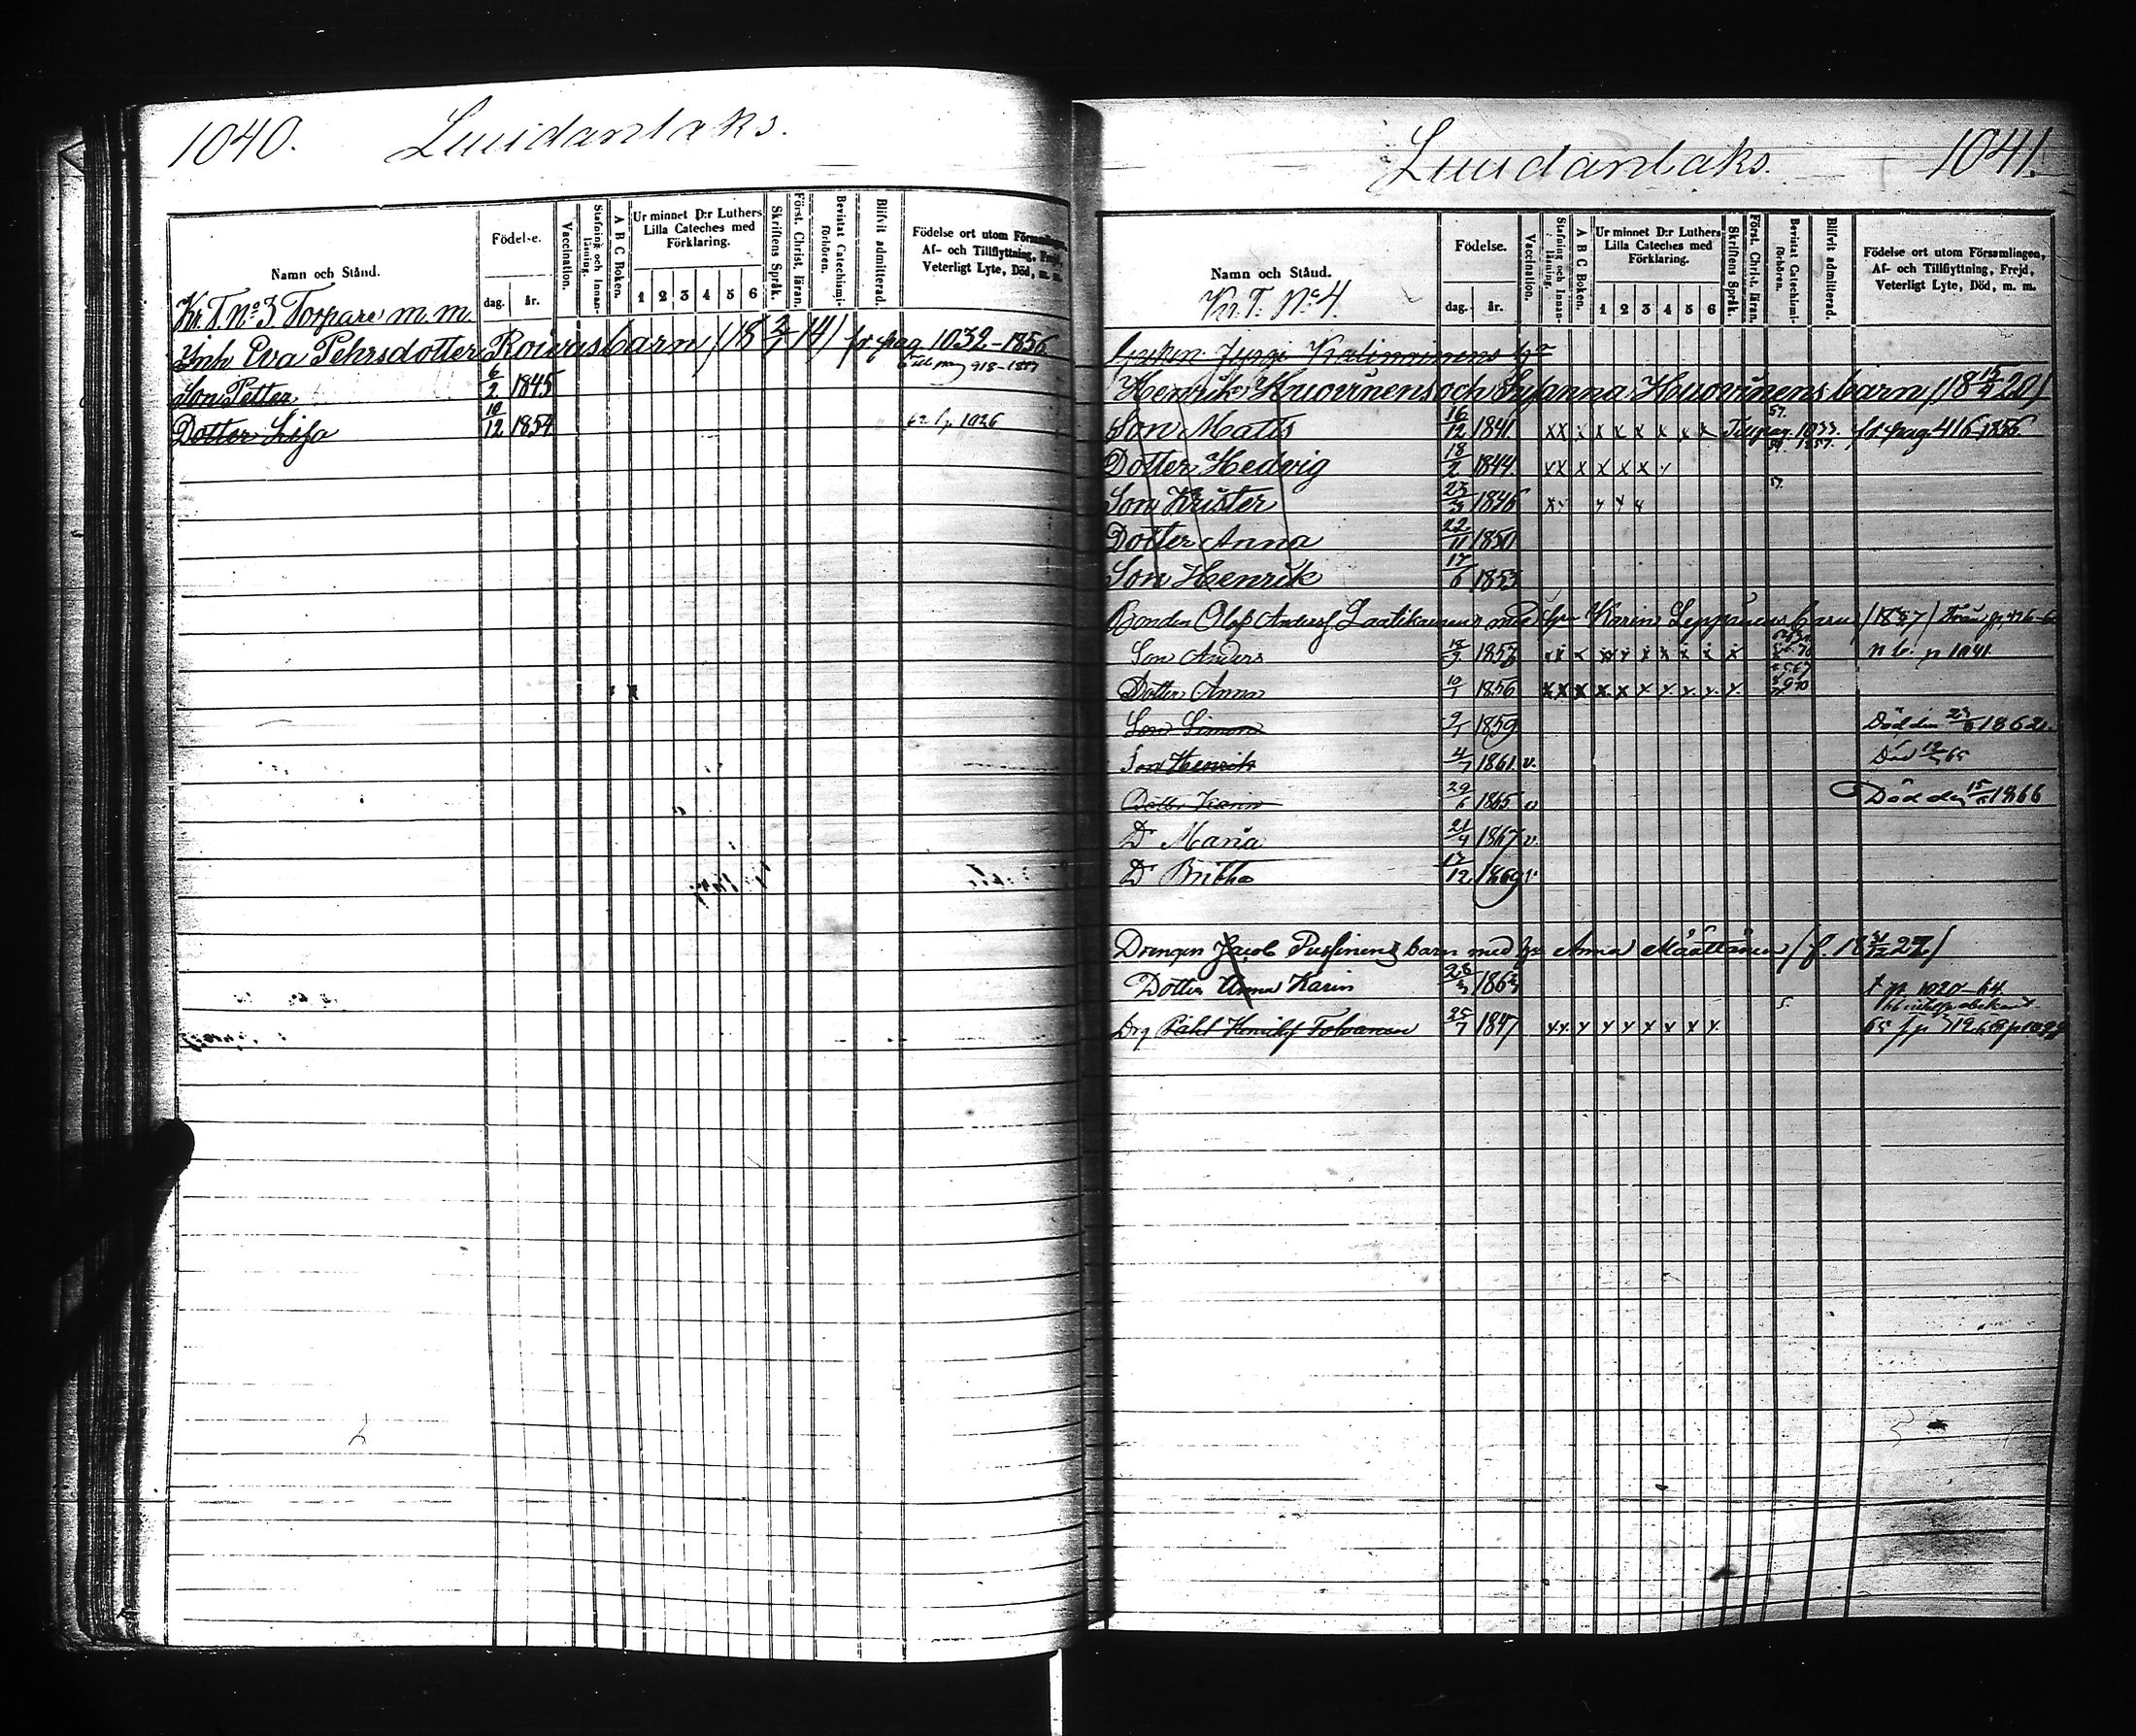 1040. Luudanlaks.
Namn och Stånd.
Födelse.
dag. år.
Vaccination.
Stafning och Innan-läsning.
A B C Boken.
Ur minnet D:r Luthers Lilla Cateches med Förklaring.
1 2 3 4 5 6
Skriftens Språk.
Först. Christ. läran.
Bevistat Catechismi-förhören.
Blifvit admitterad.
Födelse ort utom Församlingen, Af- och Tillflyttning, Frejd, Veterligt Lyte, Död, m. m.
Kr. T. No 3 Torpare m. m.
Inh Eva Pehrsdotter Roivas barn (18 2/7 14) fr pag 1032-1856
Son Petter 6/2 1845
Dotter Lisa 10/12 1854 62 fp 1026
Luudanlaks. 1041.
Namn och Stånd.
Födelse.
dag. år.
Vaccination.
Stafning och Innan-läsning.
A B C Boken.
Ur minnet D:r Luthers Lilla Cateches med Förklaring.
1 2 3 4 5 6
Skriftens Språk.
Först. Christ. läran.
Bevistat Catechismi-förhören.
Blifvit admitterad.
Födelse ort utom Församlingen, Af- och Tillflyttning, Frejd, Veterligt Lyte, Död, m. m.
Kr. T. No 4.
Henrik Huovinens och Susanna Huovinens barn (18 15/2 20)
Son Matts 16/12 1841. xx x x x x x x x Till pag. 1033. 1857. fr pag. 416, 1856.
Dotter Hedvig 18/2 1844. xx x x x x x
Son Krister 23/3 1846 57.
Dotter Anna 22/11 1850
Son Henrik 17/6 1853
Bonden Olof Anders Laatikainens med hu Karin Leppänens barn
Son Anders 1853 n b. p 1041
Dotter Anna 10/1 1856 x x x x x x x x x x
Son Simon 9/1 1859 Död den 23/8 1862.
Son Henrik 4/7 1861 v. Död 12/5 65
Dotter Karin 29/6 1865 v Död den 15/5 1866
Dr Maria 21/4 1867 v.
Dr Britha 17/12 1869 v
Drengen Jacob Pussinens barn med hu Anna Määttänen (f. 18 31/12 27)
Dotter Anna Karin 28/3 1863 t p. 1020-64
Drg Påhl Henriks Tolvanen 25/7 1847 x x x x x x x x x